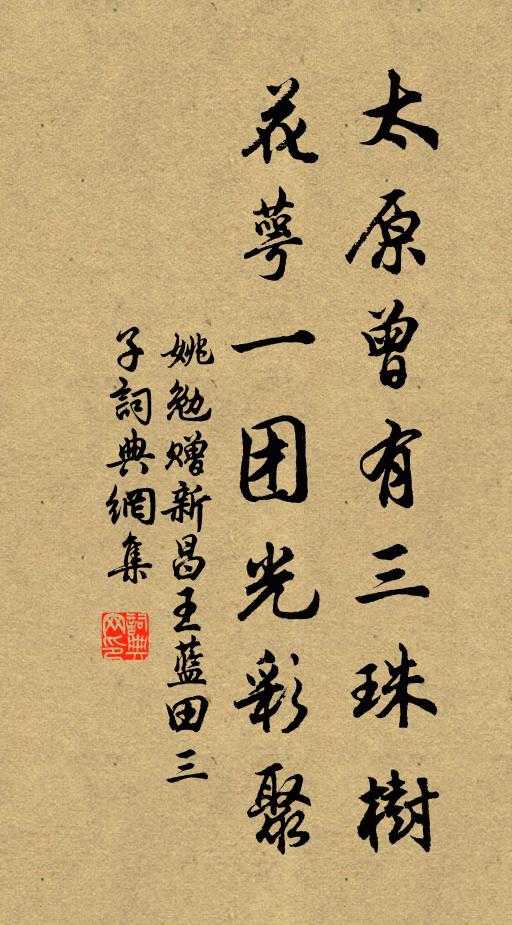 太原曾有三珠樹
花萼一团光彩聚
姚勉赠新昌王藍田三
子詞典網集
詞典網印